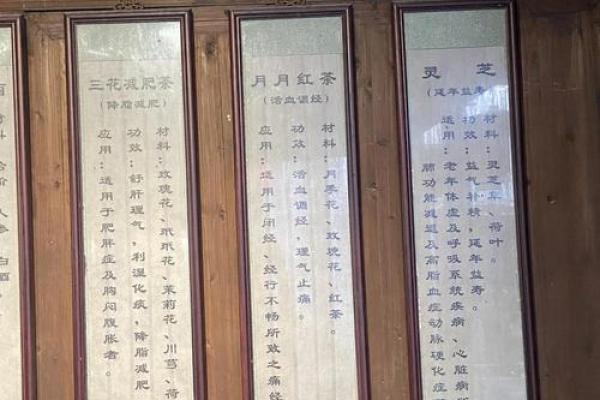 人参
白酒
三花减肥茶
(降脂减肥)
材料:玫瑰花、玳玳花、茉莉花、川芎、荷
功效:舒肝理气,利湿化痰,降脂减肥
应用:适用于肥胖症及胸闷腹胀者。
月月红茶
(活血调经)
材料:月季花、玫瑰花、红茶。
功效:活血调经,理气止痛。
应用:适用于闭经、经行不畅所致之痛经
灵芝
(延年益寿)
材料:灵芝草、荷叶。
功效:益气补精,延年益寿。
适用:老年体虚及呼吸系统疾病、心脏病
肺功能减退及高脂血症动脉硬化症